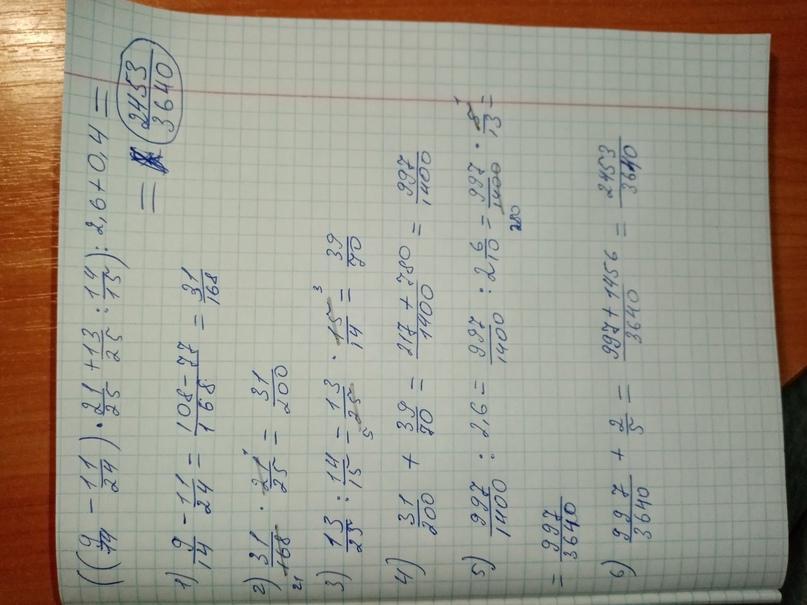 ((9/14 - 11/24) · 21/25 + 13/25 : 14/15) : 2,6 + 0,4 =
= 2453/3640
1) 9/14 - 11/24 = 108 - 77/168 = 31/168
2) 31/168 · 21/25 = 31/200
3) 13/25 : 14/15 = 13/25 · 15/14 = 39/70
4) 31/200 + 39/70 = 217 + 780/1400 = 997/1400
5) 997/1400 : 2,6 = 997/1400 : 2 6/10 = 997/1400 · 5/13 =
= 997/3640
6) 997/3640 + 2/5 = 997 + 1456/3640 = 2453/3640